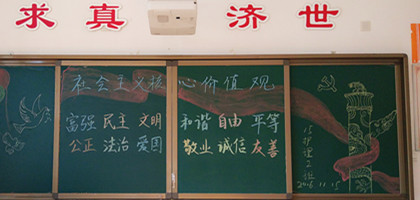 求真 济世
社会主义核心价值观
富强 民主 文明 和谐 自由 平等
公正 法治 爱国 敬业 诚信 友善
15护理2班
2016.11.15